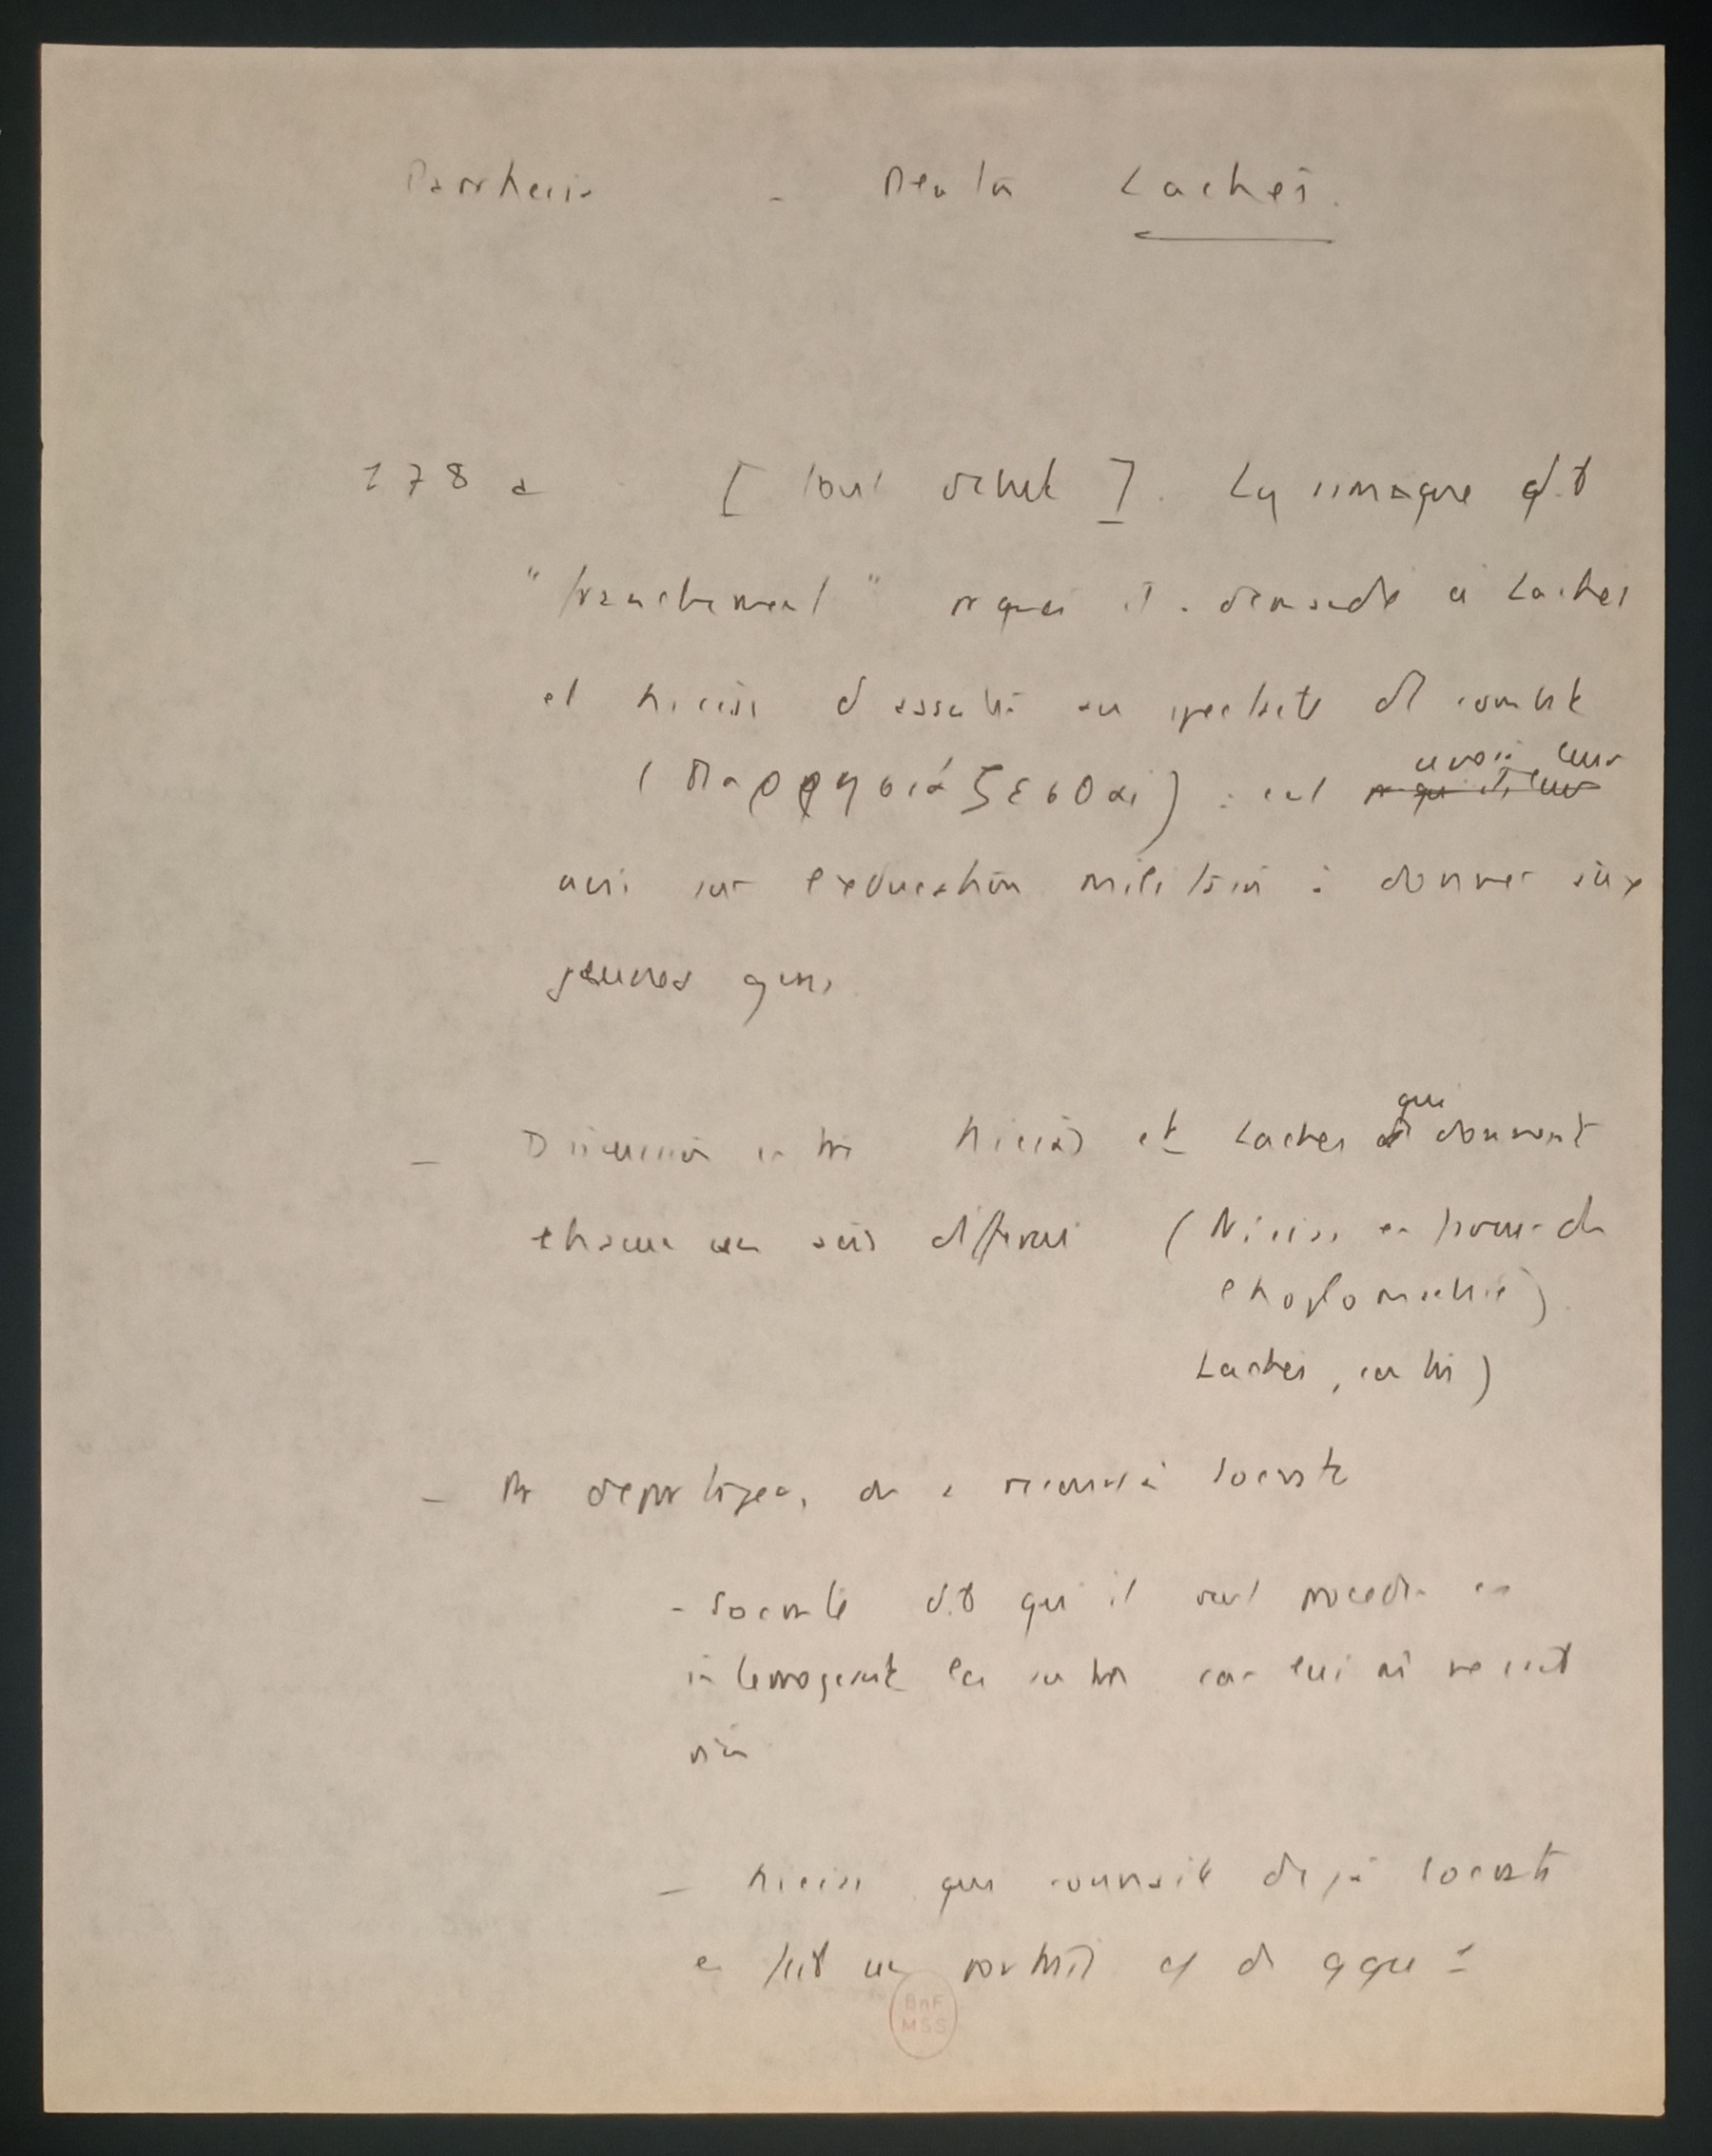 Parrhesia - Platon Lachès.
178 a [Tout début]. Lysimaque dit
"franchement" pourquoi il a demandé à Lachès
et Nicias d'assister au spectacle de combat
(Παρρησιάζεσθαι) : c'est avoir leur
avis sur l'éducation militaire à donner aux
jeunes gens.
- Discussion entre Nicias et Lachès qui donnent
chacun un avis différent (Nicias est pour de
l'hoplomachie)
Lachès, contre)
- Pr départager, on a recours à Socrate
- Socrate dit qu'il veut procéder en
interrogeant les autres car lui ne sait
rien
- Nicias qui connaît déjà Socrate
en fait un portrait
BnF
MSS